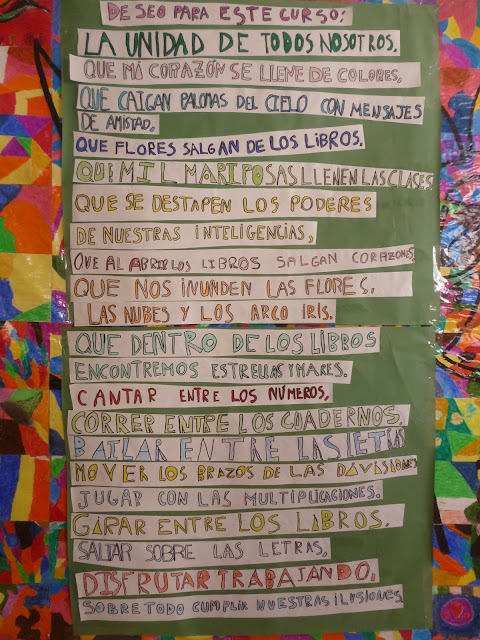 DESEO PARA ESTE CURSO:
LA UNIDAD DE TODOS NOSOTROS.
QUE MI CORAZÓN SE LLENE DE COLORES,
QUE CAIGAN PALOMAS DEL CIELO CON MENSAJES
DE AMISTAD,
QUE FLORES SALGAN DE LOS LIBROS.
QUE MIL MARIPOSAS LLENEN LAS CLASES
QUE SE DESTAPEN LOS PODERES
DE NUESTRAS INTELIGENCIAS,
QUE AL ABRIR LOS LIBROS SALGAN CORAZONES,
QUE NOS INUNDEN LAS FLORES,
LAS NUBES Y LOS ARCO IRIS.
QUE DENTRO DE LOS LIBROS
ENCONTREMOS ESTRELLAS Y MARES.
CANTAR ENTRE LOS NÚMEROS,
CORRER ENTRE LOS CUADERNOS,
BAILAR ENTRE LAS LETRAS
MOVER LOS BRAZOS DE LAS DIVISIONES
JUGAR CON LAS MULTIPLICACIONES.
GIRAR ENTRE LOS LIBROS.
SALTAR SOBRE LAS LETRAS,
DISFRUTAR TRABAJANDO,
SOBRE TODO CUMPLIR NUESTRAS ILUSIONES